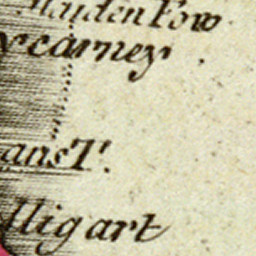 Mayden Fow
ycarney
ans T.
lligart